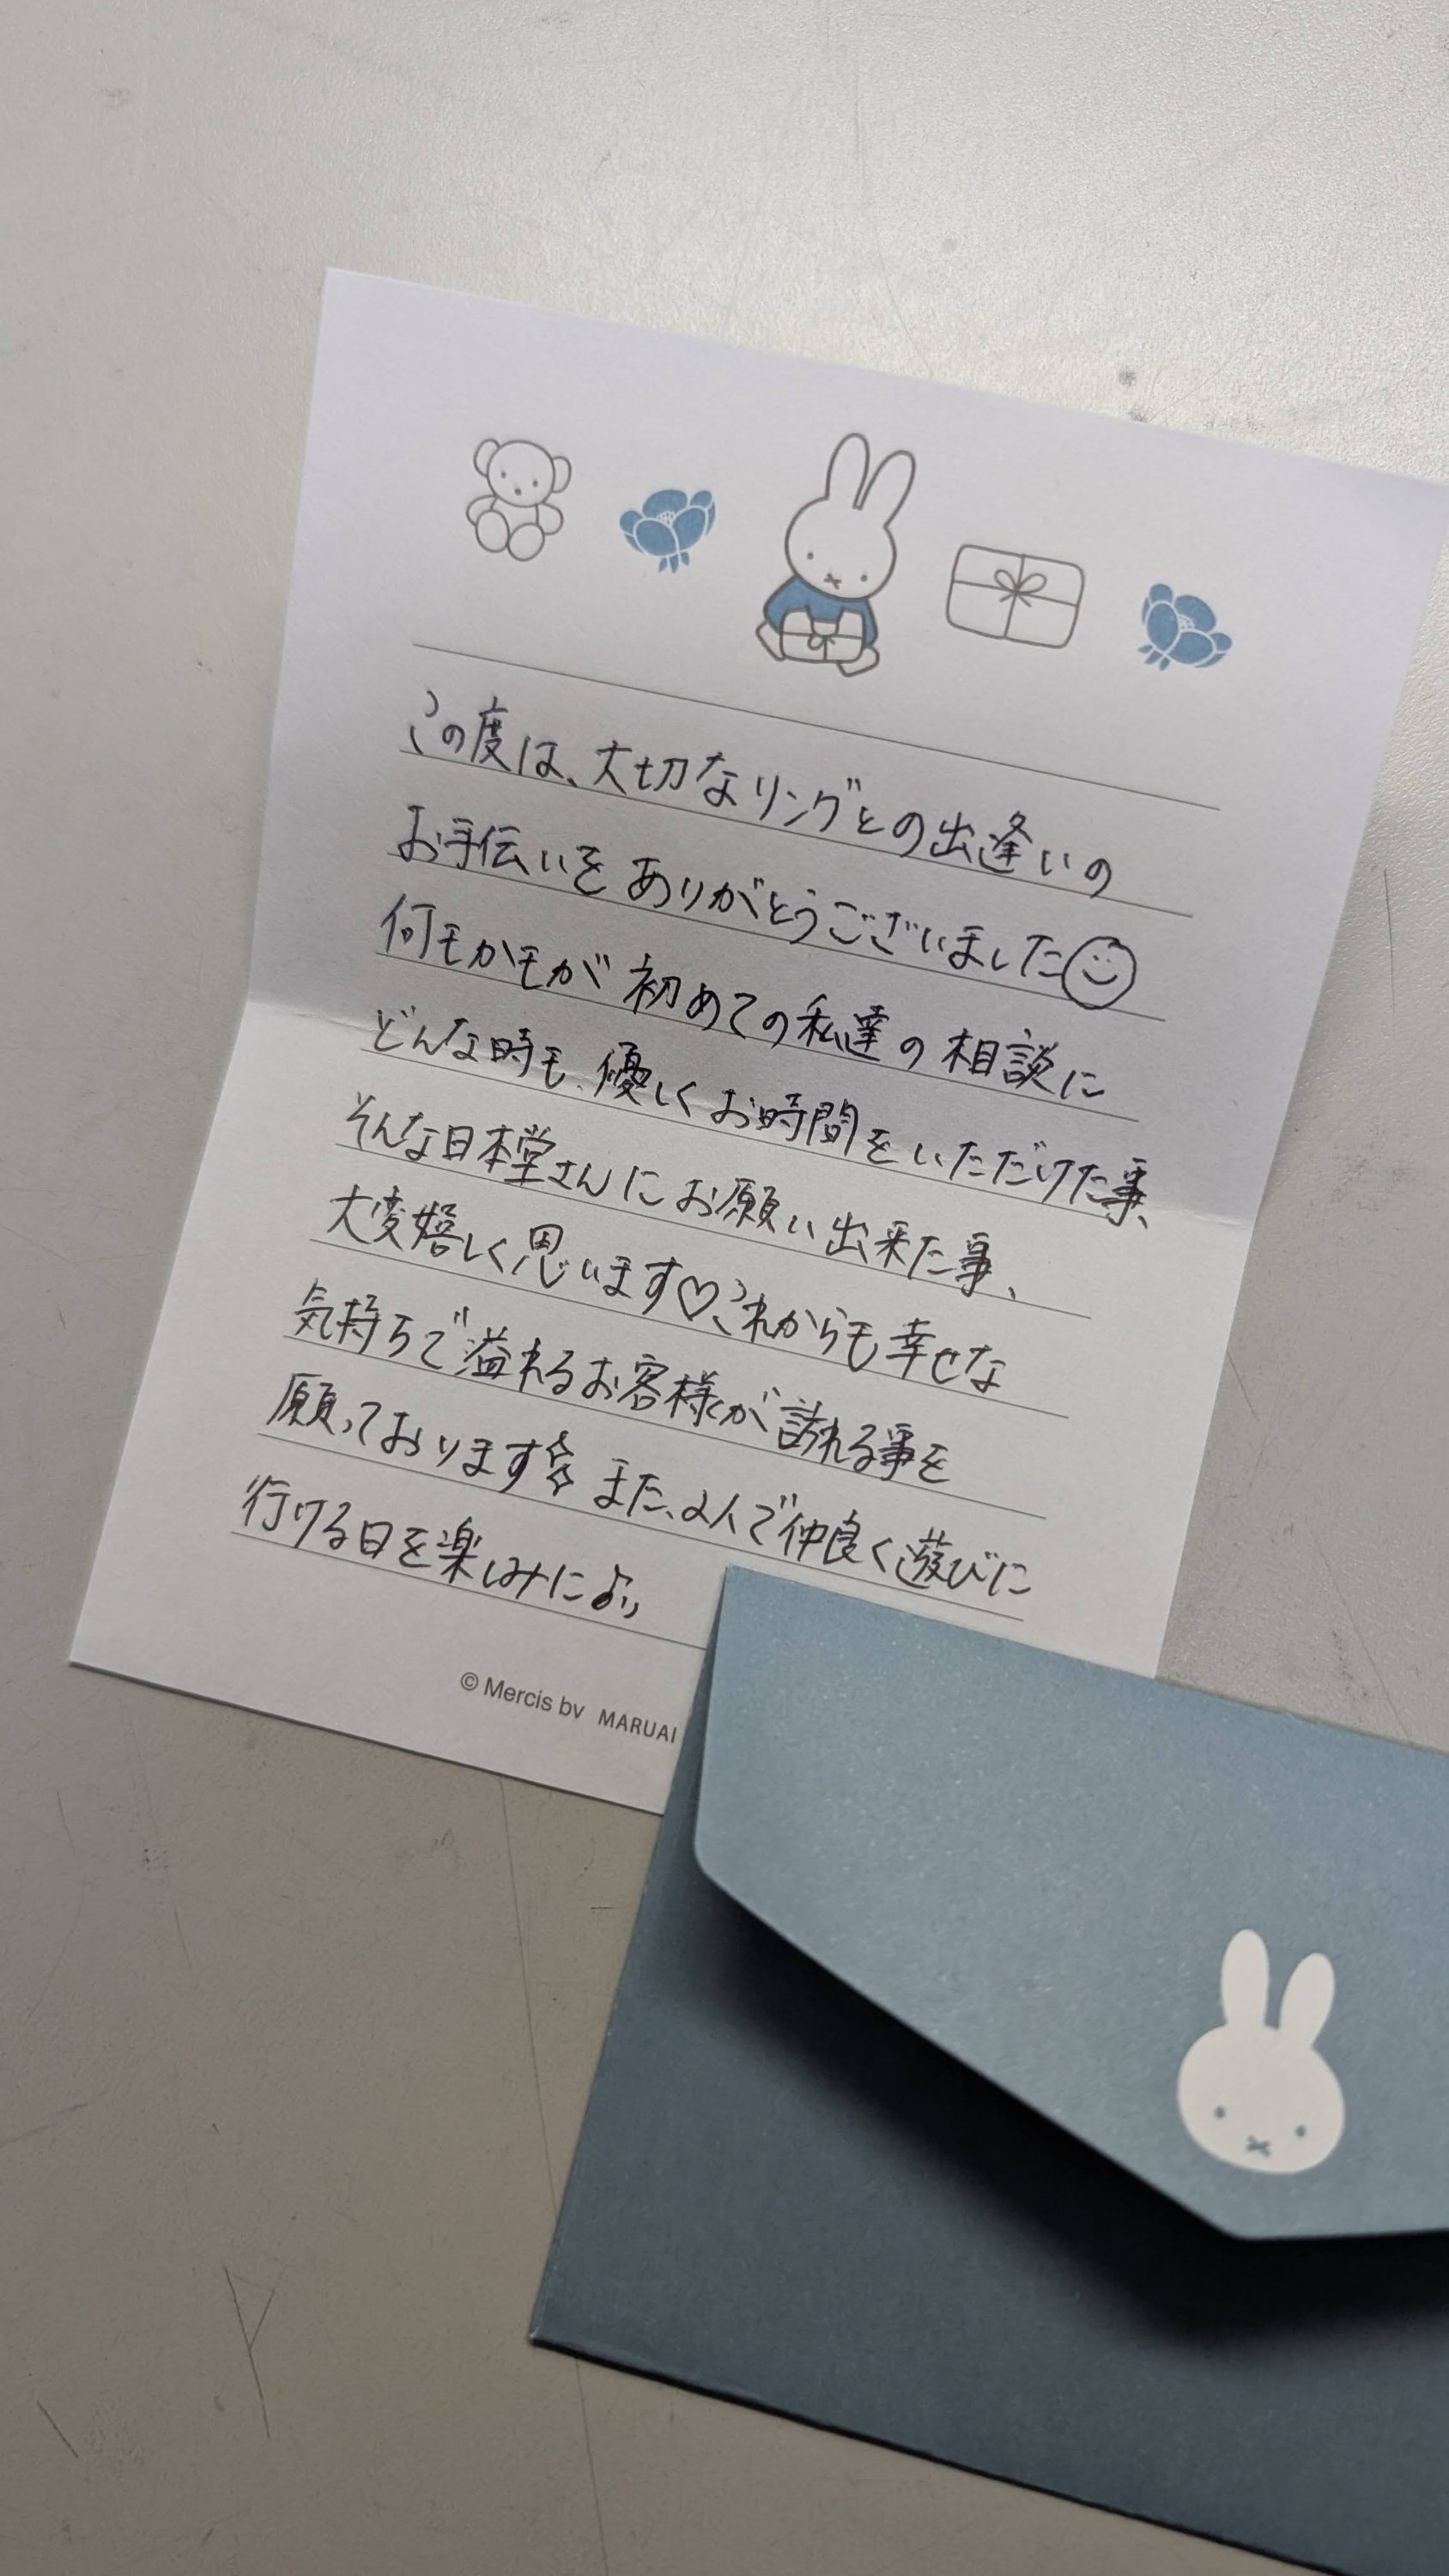 この度は、大切なリングとの出逢いの
お手伝いをありがとうございました☺
何もかもが初めての私達の相談に
どんな時も、優しくお時間をいただけた事、
そんな日本堂さんにお願い出来た事、
大変嬉しく思います♡これからも幸せな
気持ちで溢れるお客様が訪れる事を
願っております☆また、2人で仲良く遊びに
行ける日を楽しみに
© Mercis bv MARUAI